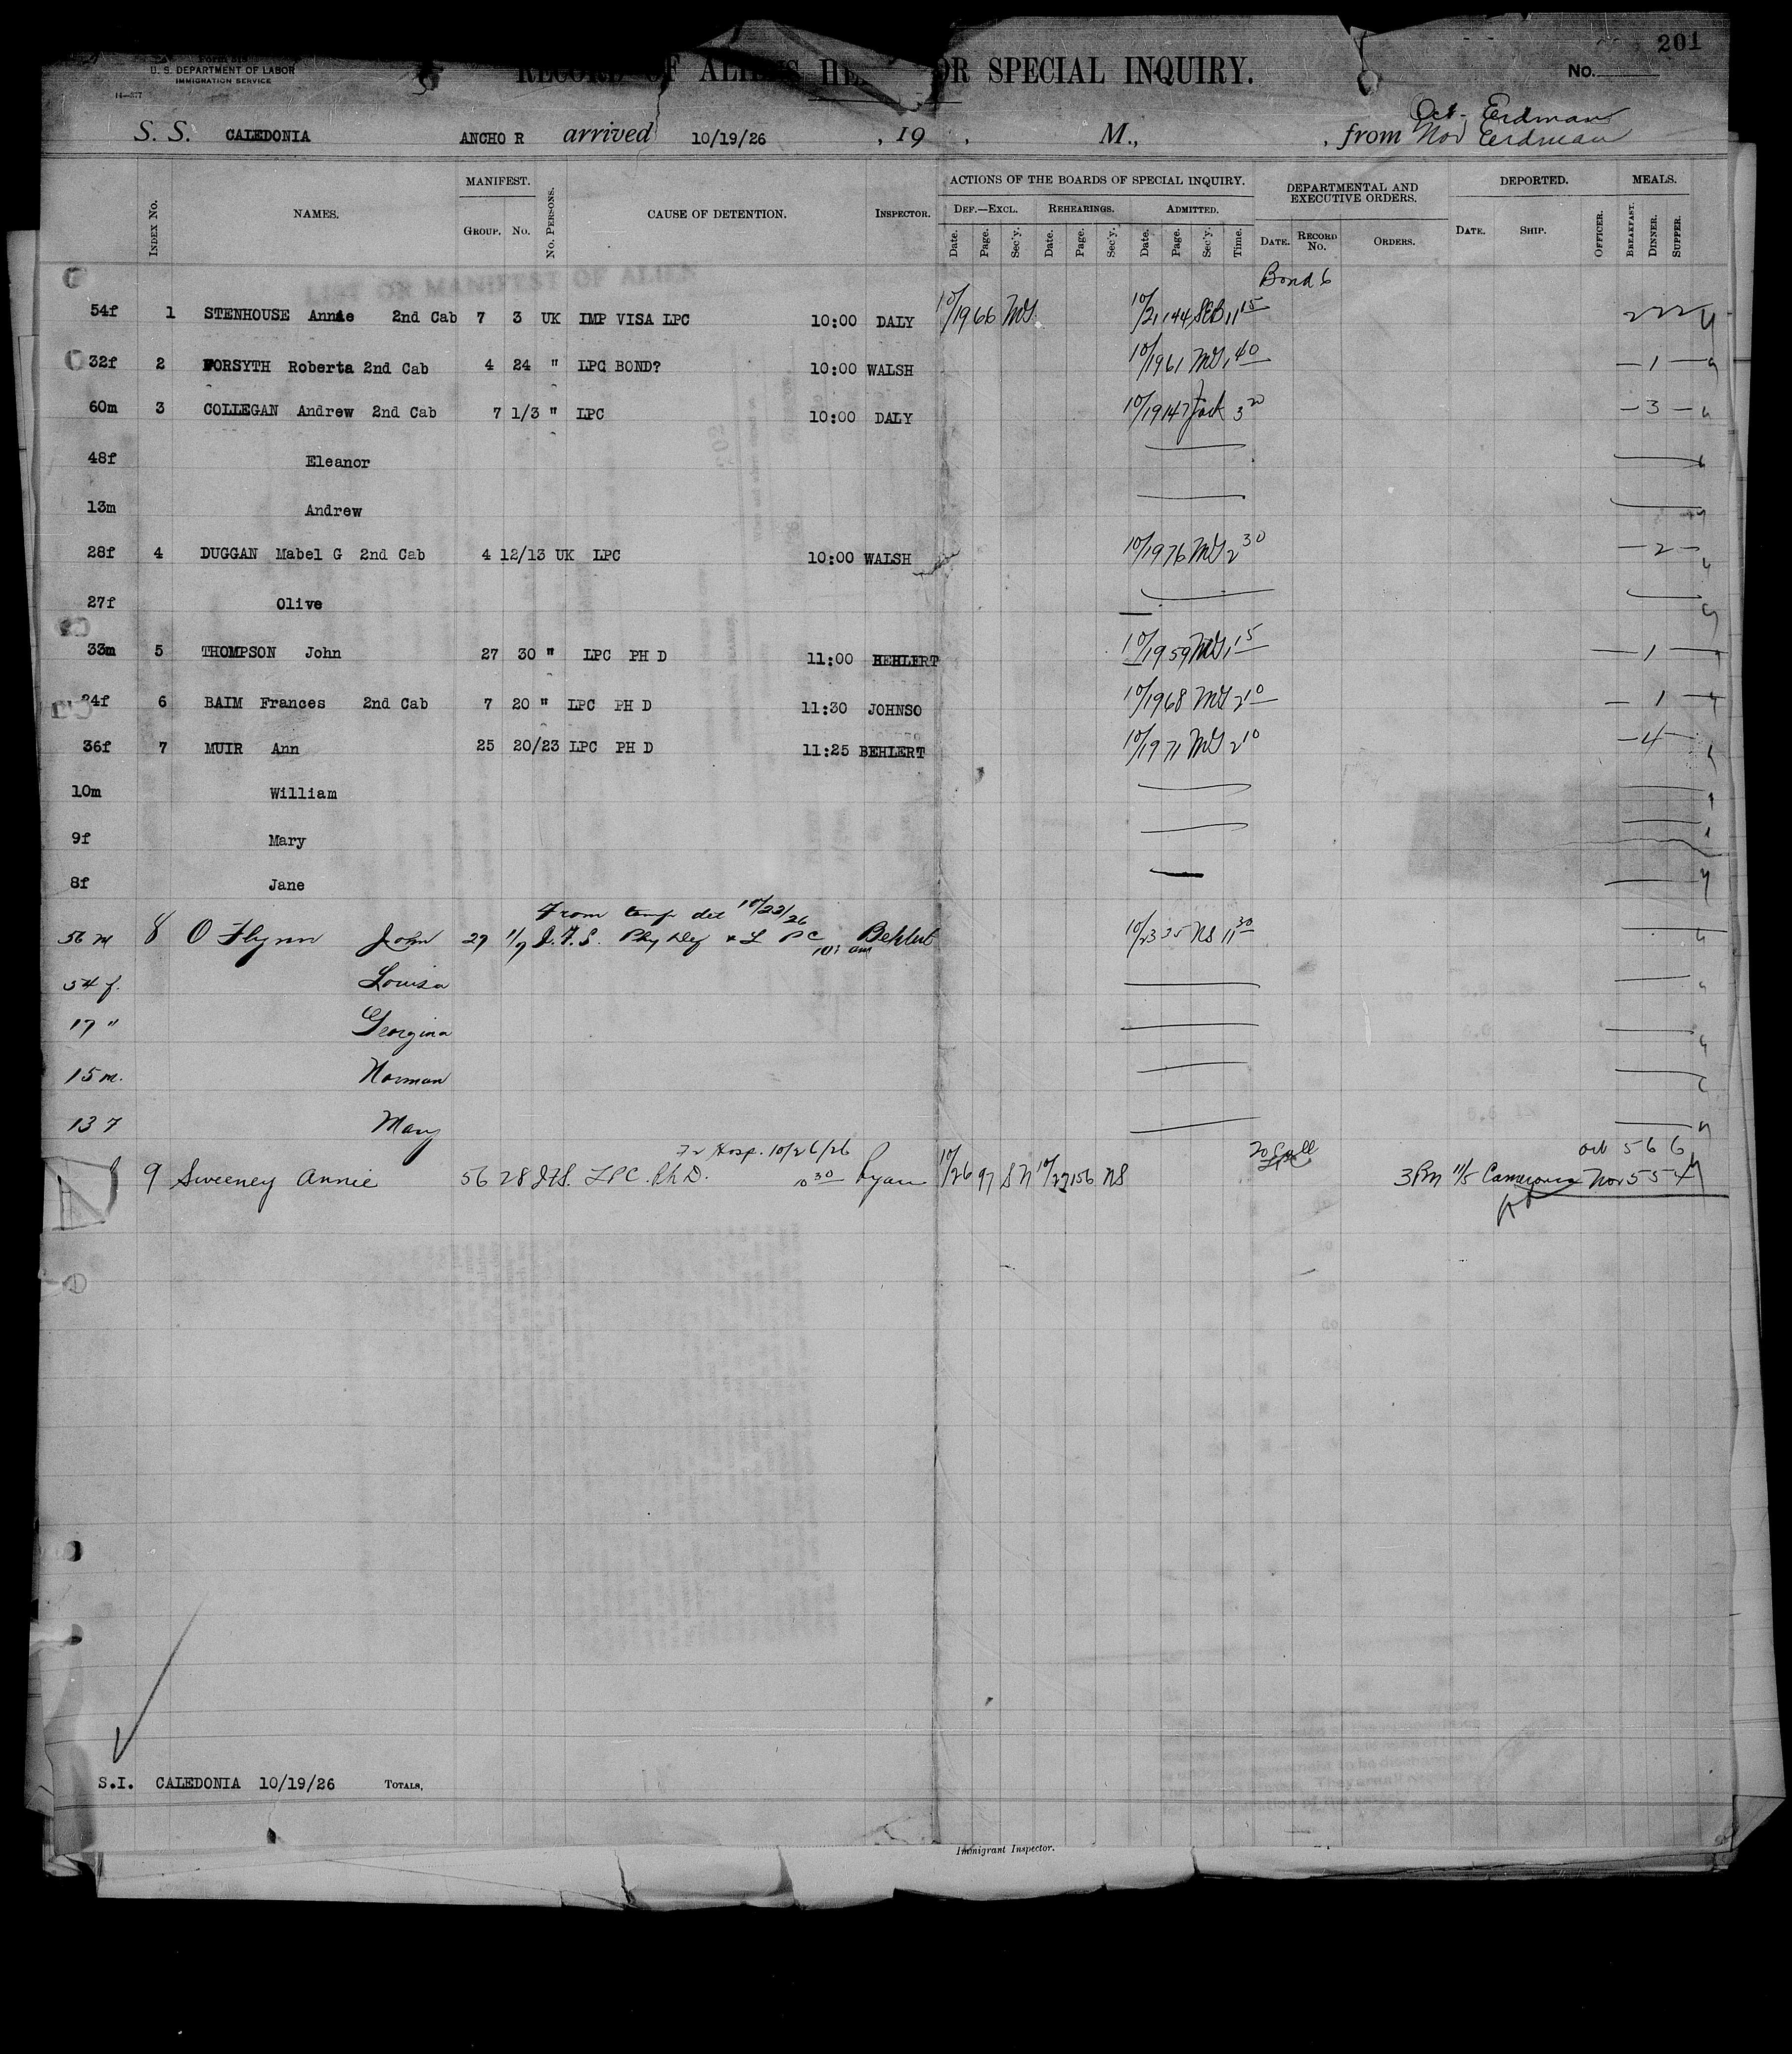 201
Form 618
U. S. DEPARTMENT OF LABOR
IMMIGRATION SERVICE
14—577
RECORD OF ALIENS HELD FOR SPECIAL INQUIRY.
No.
Oct. Erdman
S. S. CALEDONIA ANCHO R arrived 10/19/26 , 19 , M., , from Nov Erdman
Index No. NAMES. MANIFEST. Group. No. No. Persons. CAUSE OF DETENTION. Inspector. ACTIONS OF THE BOARDS OF SPECIAL INQUIRY. Def.—Excl. Date. Page. Sec'y. Rehearings. Date. Page. Sec'y. Admitted. Date. Page. Sec'y. Time. DEPARTMENTAL AND EXECUTIVE ORDERS. Date. Record No. Orders. DEPORTED. Date. Ship. Officer. MEALS. Breakfast. Dinner. Supper.
LIST OR MANIFEST OF ALIEN
Bond 6
54f 1 STENHOUSE Annie 2nd Cab 7 3 UK IMP VISA LPC 10:00 DALY 10/19 66 MG 10/21 144 SEB 11 15 2 2 2
32f 2 FORSYTH Roberta 2nd Cab 4 24 " LPC BOND? 10:00 WALSH 10/19 61 MG 1 40 — 1 —
60m 3 COLLEGAN Andrew 2nd Cab 7 1/3 " LPC 10:00 DALY 10/19 147 Jack 3 20 — 3 —
48f Eleanor
13m Andrew
28f 4 DUGGAN Mabel G 2nd Cab 4 12/13 UK LPC 10:00 WALSH 10/19 76 MG 2 30 — 2 —
27f Olive
33m 5 THOMPSON John 27 30 " LPC PH D 11:00 BEHLERT 10/19 59 MG 1 15 — 1 —
24f 6 BAIM Frances 2nd Cab 7 20 " LPC PH D 11:30 JOHNSO 10/19 68 MG 2 10 — 1 —
36f 7 MUIR Ann 25 20/23 LPC PH D 11:25 BEHLERT 10/19 71 MG 2 10 — 4 —
10m William
9f Mary
8f Jane
From temp det 10/23/26
56 m 8 O Flynn John 29 1/7 I.F.S. Phy Def & L P C 10: am Behlert 10/23 35 NS 11 30
54 f. Louisa
17 " Georgina
15 m. Norman
13 f Mary
Fr Hosp. 10/26/26 Oct 5 6 6
9 Sweeney Annie 56 28 IFS. LPC. Ph D. 10 30 Ryan 10/26 97 S N 10/27 156 NS 3 Pm 11/5 Cameronia Nov 5 5 4
S.I. CALEDONIA 10/19/26 Totals,
Immigrant Inspector.